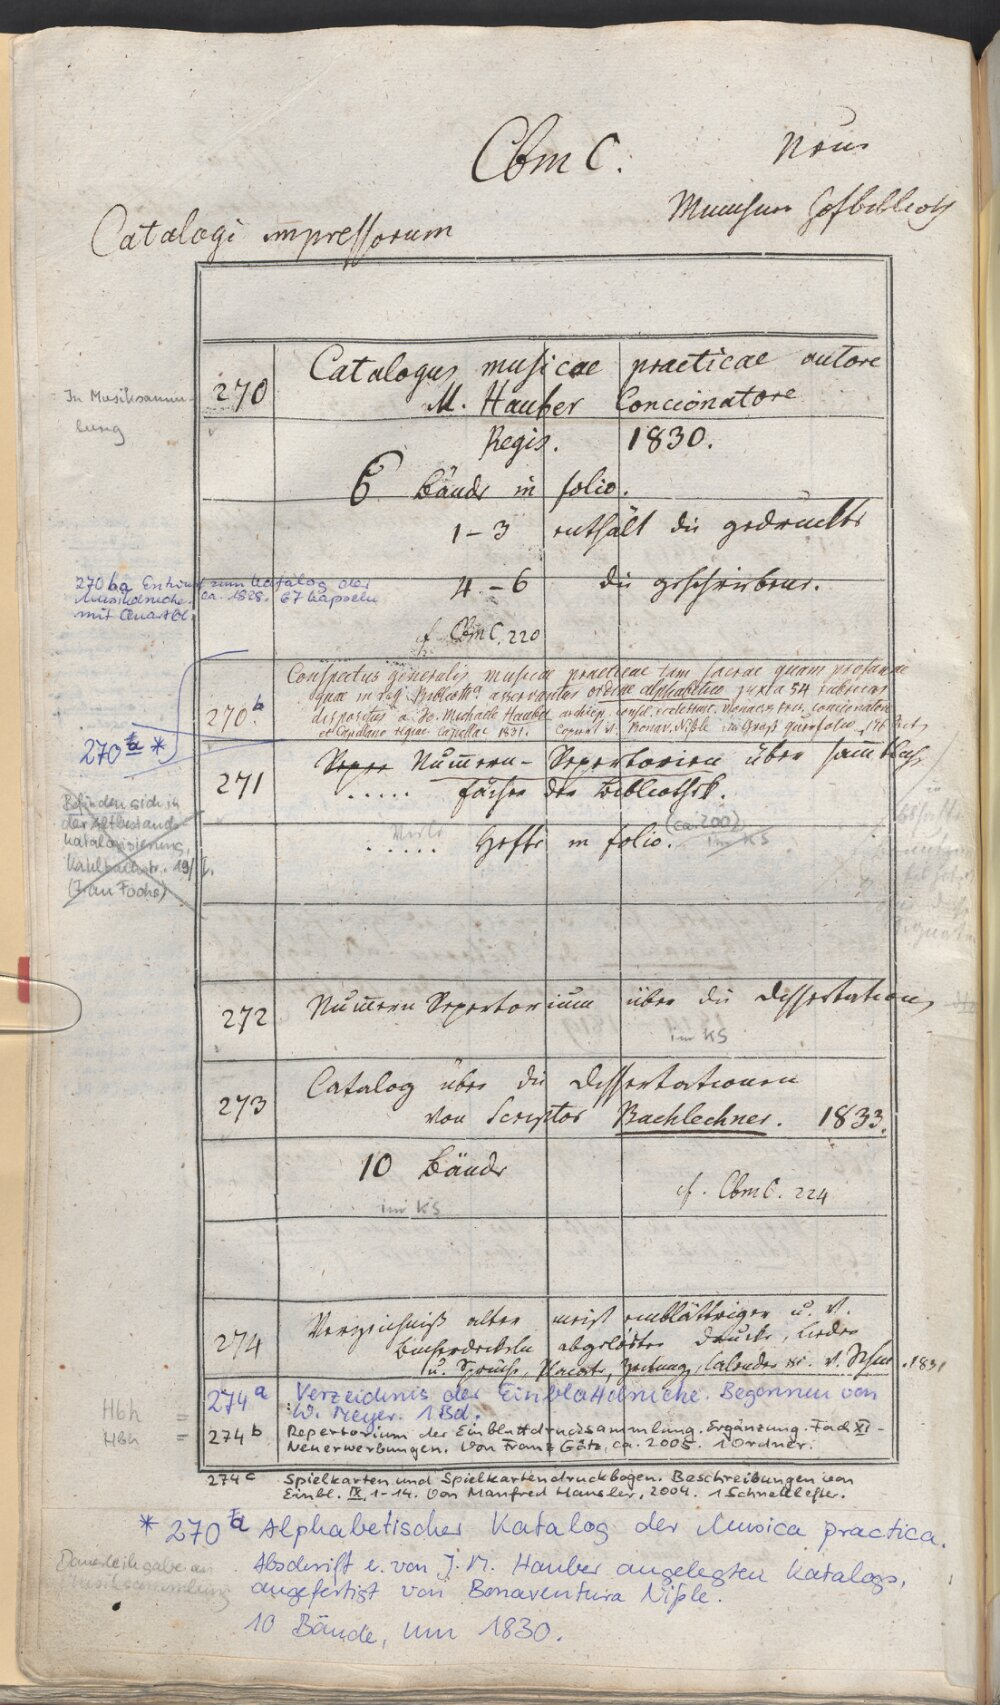 Cbm C.
Neue
Catalogi impressorum
270
Catalogus musicae practicae autore
M. Hauber Concionatore
Regis. 1830.
In Musiksamm-
lung
6 Bände in folio.
1-3 enthält die gedruckte
4-6 die geschriebene.
270 ba Entwurf zum Katalog der
Musikdrucke ca. 1828. 67 Kapseln
mit Quartbl.
cf. CbmC. 220
270.b
Conspectus generalis musicae practicae tam sacrae quam profanae
quae in reg. Bibliotha. asservantur ordine alphabetico juxta 54 rubricas
dispositus a Jo. Michaele Hauber
et Capellano regiae capellae 1831.
270 *
271
Nummern-Repertorien über sämtliche
..... Fächer der Bibliothek.
Befinden sich in
der Altbestands-
katalogisierung,
Kaulbachstr. 19/I.
(Frau Fochs)
..... Hefte in folio. (ca. 200)
im KS
272
Nummern Repertorium über die Dissertationen
im KS
273
Catalog über die Dissertationen
von Scriptor Bachlechner. 1833.
10 Bände
cf. CbmC. 224
im KS
274
Verzeichniß alter meist einblättriger u. v.
Bücherdeckeln abgelöster Drucke, Lieder
u. Sprüche, Placat, Zeitung, Calender 1831
274 a Verzeichnis der Einblattdrucke. Begonnen von
W. Meyer. 1 Bd.
Hbh =
Hbh =
274 b Repertorium der Einblattdrucksammlung. Ergänzung. Fach XI -
Neuerwerbungen. Von Franz Götz, ca. 2005. 1 Ordner.
274 c Spielkarten und Spielkartendruckbogen. Beschreibungen von
Einbl. IX, 1-14. Von Manfred Hausler, 2004. 1 Schnellhefter.
* 270 Alphabetischer Katalog der Musica practica.
Dauerleihgabe an
Musiksammlung
Abschrift e. von J. M. Hauber angelegten Katalogs,
angefertigt von Bonaventura Nißle.
10 Bände, um 1830.